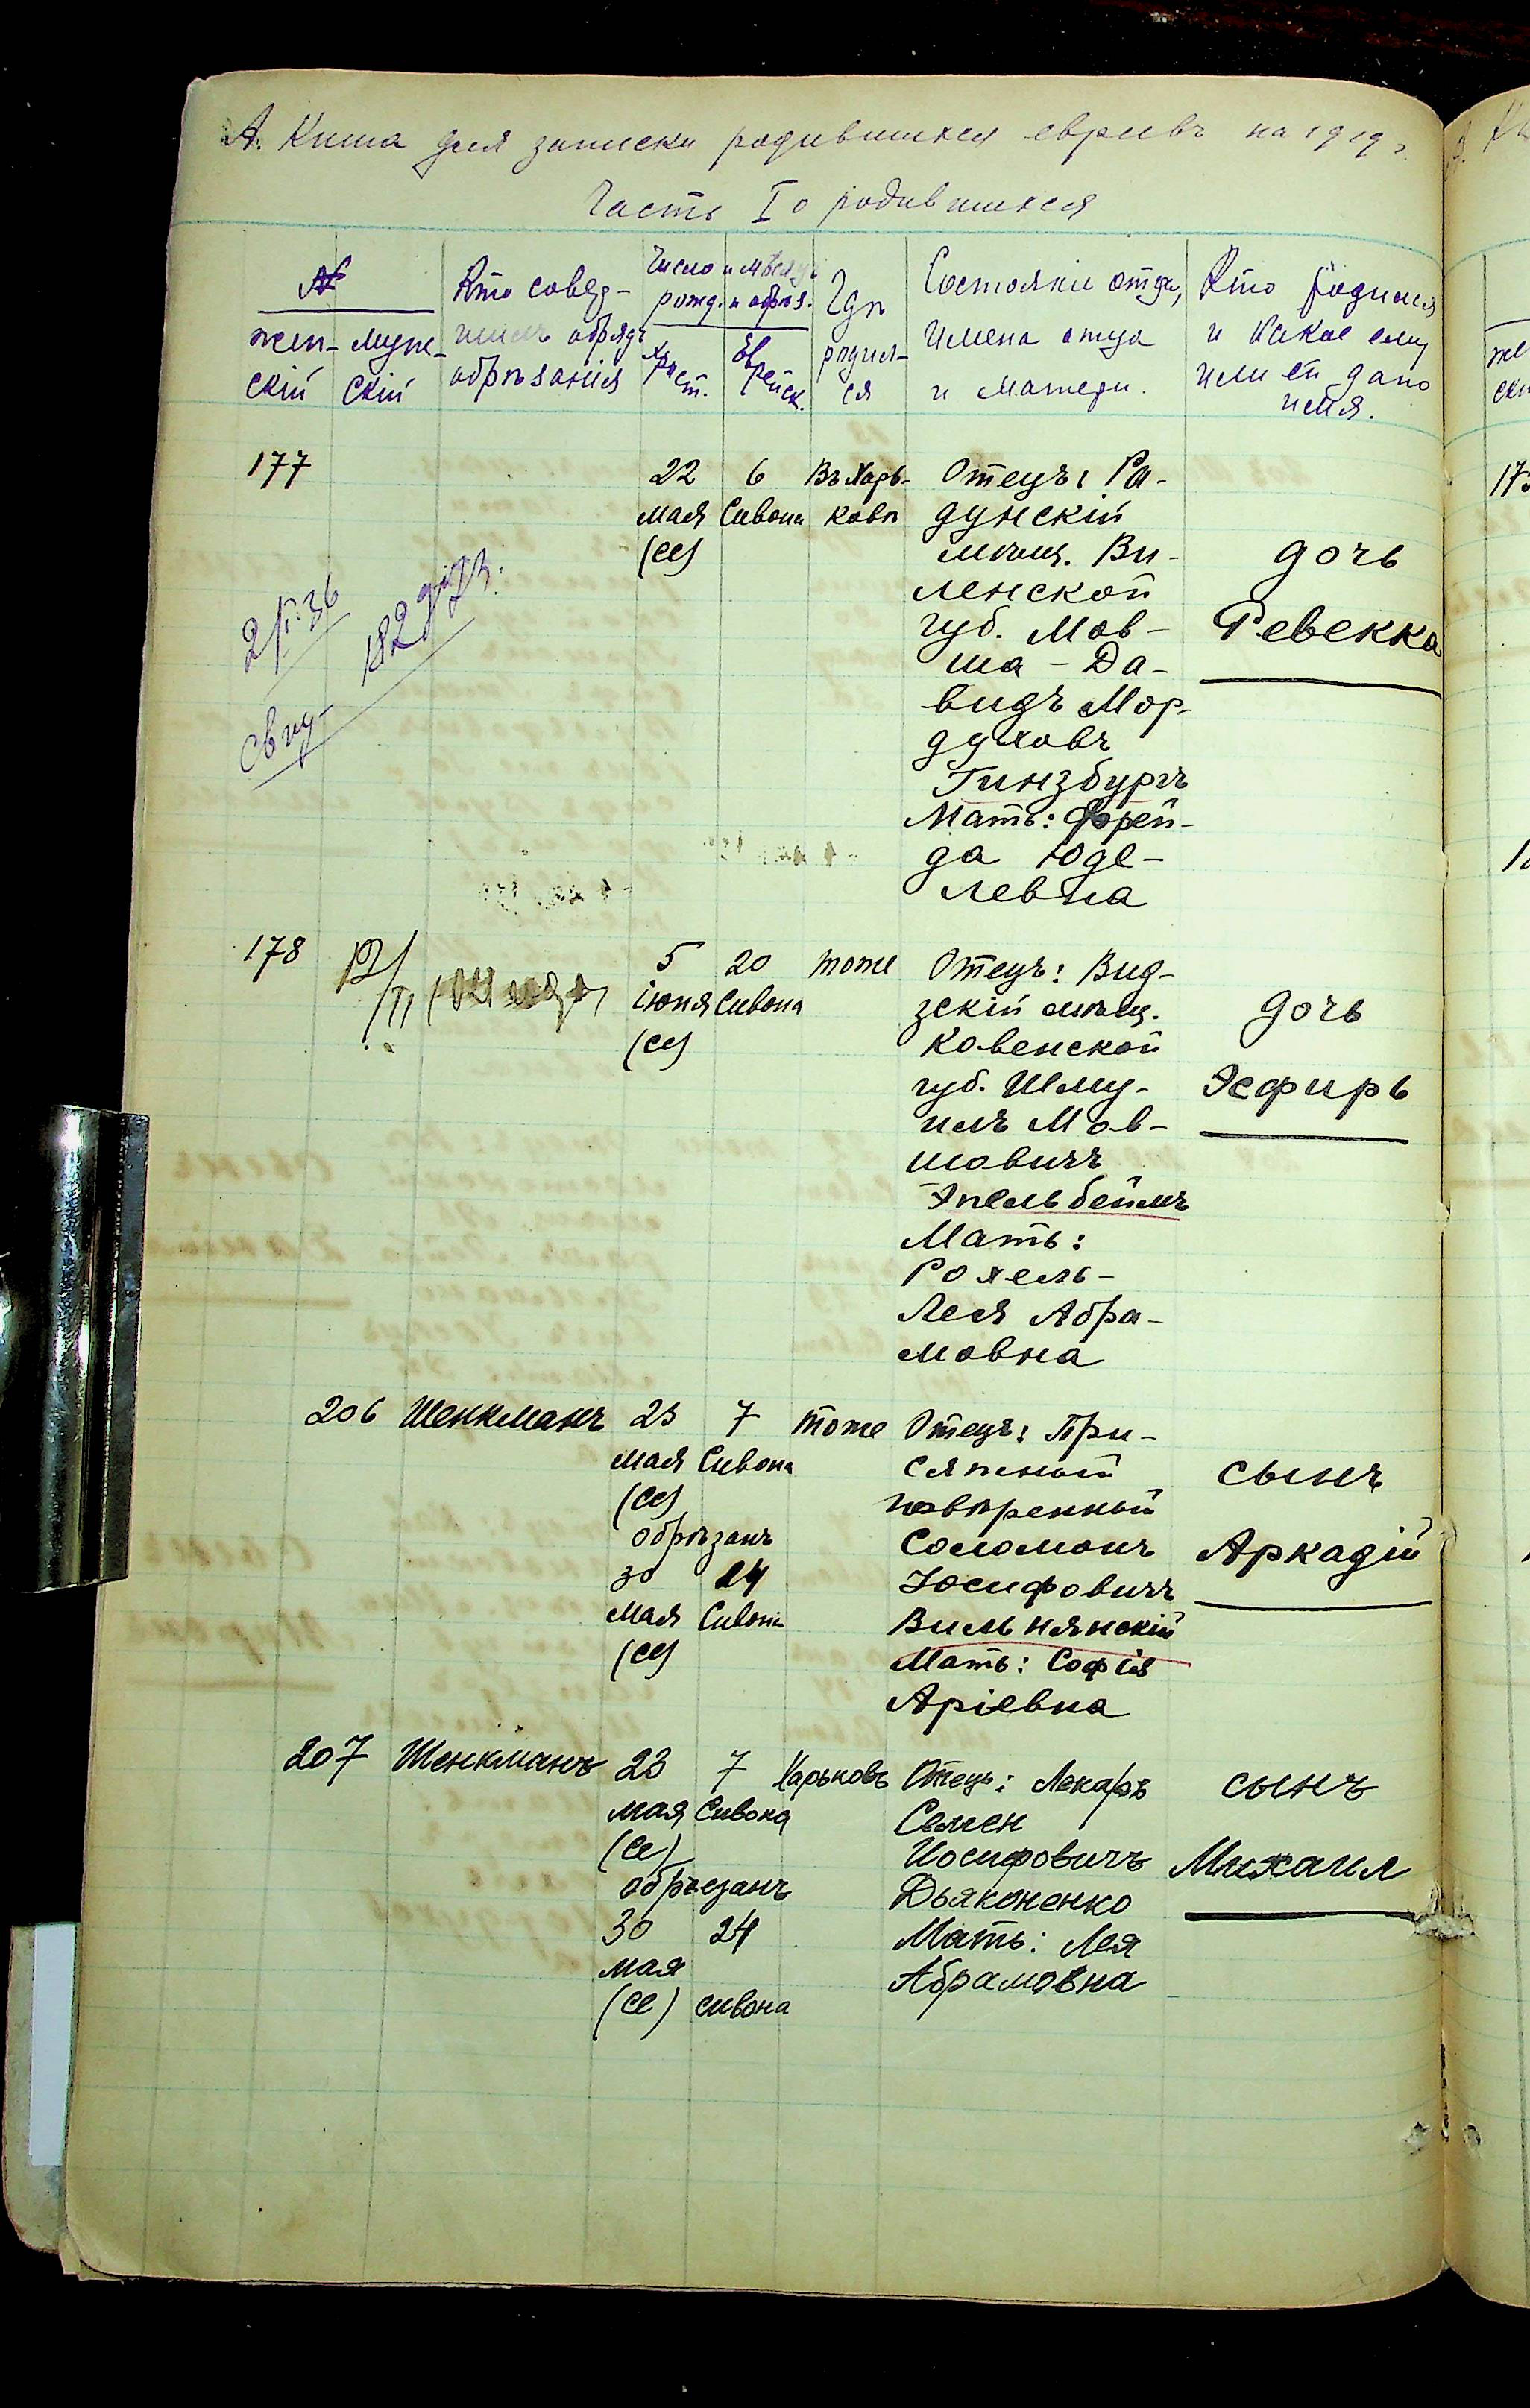 А. Книга для записки родившихся евреевъ на 1919 г.
Часть I о родившихся
№
жен-
скій
муж-
скій
Кто совер-
шилъ обрядъ
обрѣзанія
Число и мѣсяцъ
рожд. и обрѣз.
Христ.
Еврейск.
Гдѣ
родил-
ся
Состояніе отца,
имена отца
и матери.
Кто родился
и какое ему
или ей дано
имя.
177
22
мая
(СС)
6
Сивона
Въ Харь-
ковѣ
Отецъ: Ра-
дунскій
мѣщ. Ви-
ленской
губ. Мов-
ша - Да-
видъ Мор-
духовъ
Гинзбургъ
Мать: Фрей-
да Юде-
левна
дочь
Ревекка
178
5
іюня
(СС)
20
Сивона
тоже
Отецъ: Вид-
зскій мѣщ.
Ковенской
губ. Шму-
илъ Мов-
шовичъ
Эпельбеймъ
Мать:
Рохель-
Лея Абра-
мовна
дочь
Эсфирь
206
Шенкманъ
23
мая
(СС)
7
Сивона
обрѣзанъ
30
мая
(СС)
24
Сивона
тоже
Отецъ: При-
сяжный
повѣренный
Соломонъ
Юсифовичъ
Вильнянскій
Мать: Софія
Аріевна
сынъ
Аркадій
207
Шенкманъ
23
мая
(СС)
7
Сивона
обрѣзанъ
30
мая
(СС)
24
сивона
Харьковъ
Отецъ: Лекарь
Семен
Иосифовичъ
Дьяконенко
Мать: Лея
Абрамовна
сынъ
Михаил